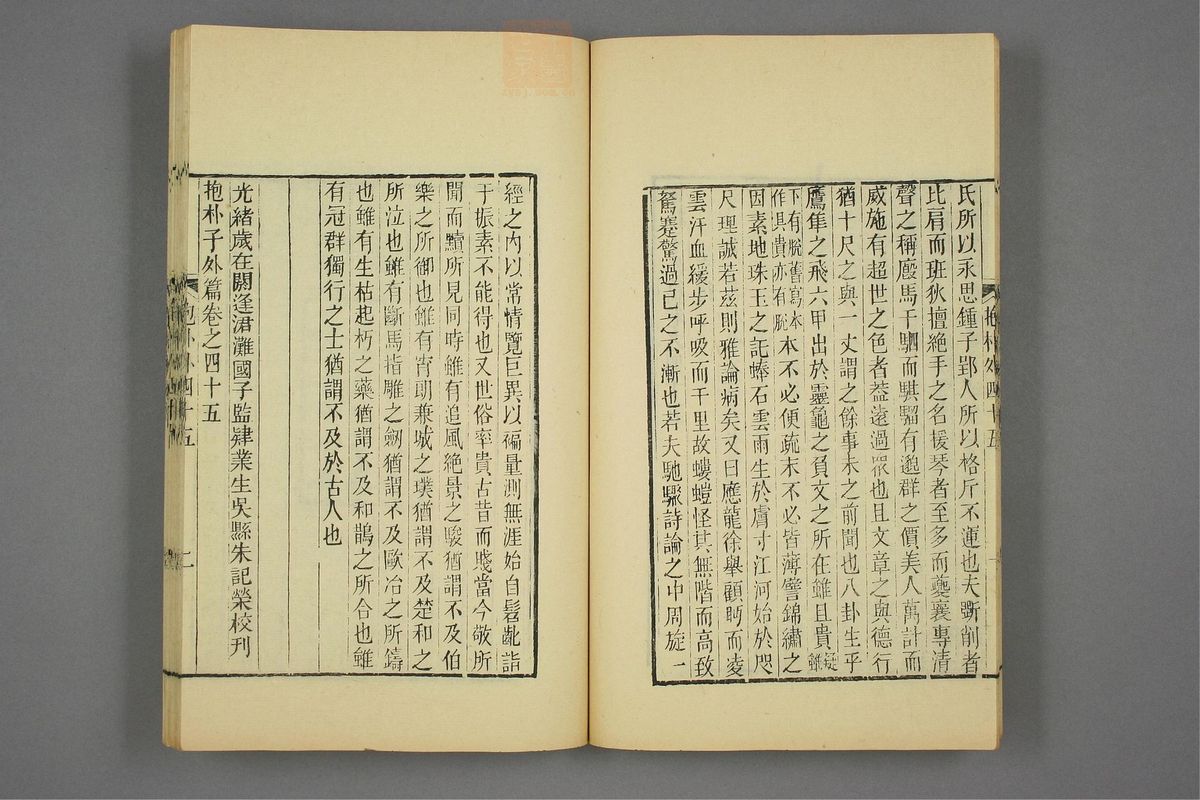 氏所以永思鍾子郢人所以格斤不運也夫斲削者
比肩而班狄擅絶手之名援琴者至多而夔襄專清
聲之稱廄馬千駟而騏騮有邈群之價美人萬計而
威施有超世之色者葢遠過衆也且文章之與德行
猶十尺之與一丈謂之餘事未之前聞也八卦生乎
鷹隼之飛六甲出於靈龜之負文之所在雖且貴疑雖
下有脫舊寫本作具貴亦有脫本不必便疏末不必皆薄譬錦繡之
因素地珠玉之託蜯石雲雨生於膚寸江河始於咫
尺理誠若茲則雅論病矣又曰應龍徐舉顧眄而凌
雲汗血緩步呼吸而千里故螻螘怪其無階而高致
駑蹇驚過己之不漸也若夫馳驟詩論之中周旋一
抱朴外四十五
經之內以常情覽巨異以褊量測無涯始自髫齓詣
于振素不能得也又世俗率貴古昔而賤當今敬所
聞而黷所見同時雖有追風絶景之駿猶謂不及伯
樂之所御也雖有宵朗兼城之璞猶謂不及楚和之
所泣也雖有斷馬指雕之劒猶謂不及歐冶之所鑄
也雖有生枯起朽之藥猶謂不及和鵲之所合也雖
有冠群獨行之士猶謂不及於古人也
光緒歲在閼逢涒灘國子監肄業生吳縣朱記榮校刊
抱朴子外篇卷之四十五